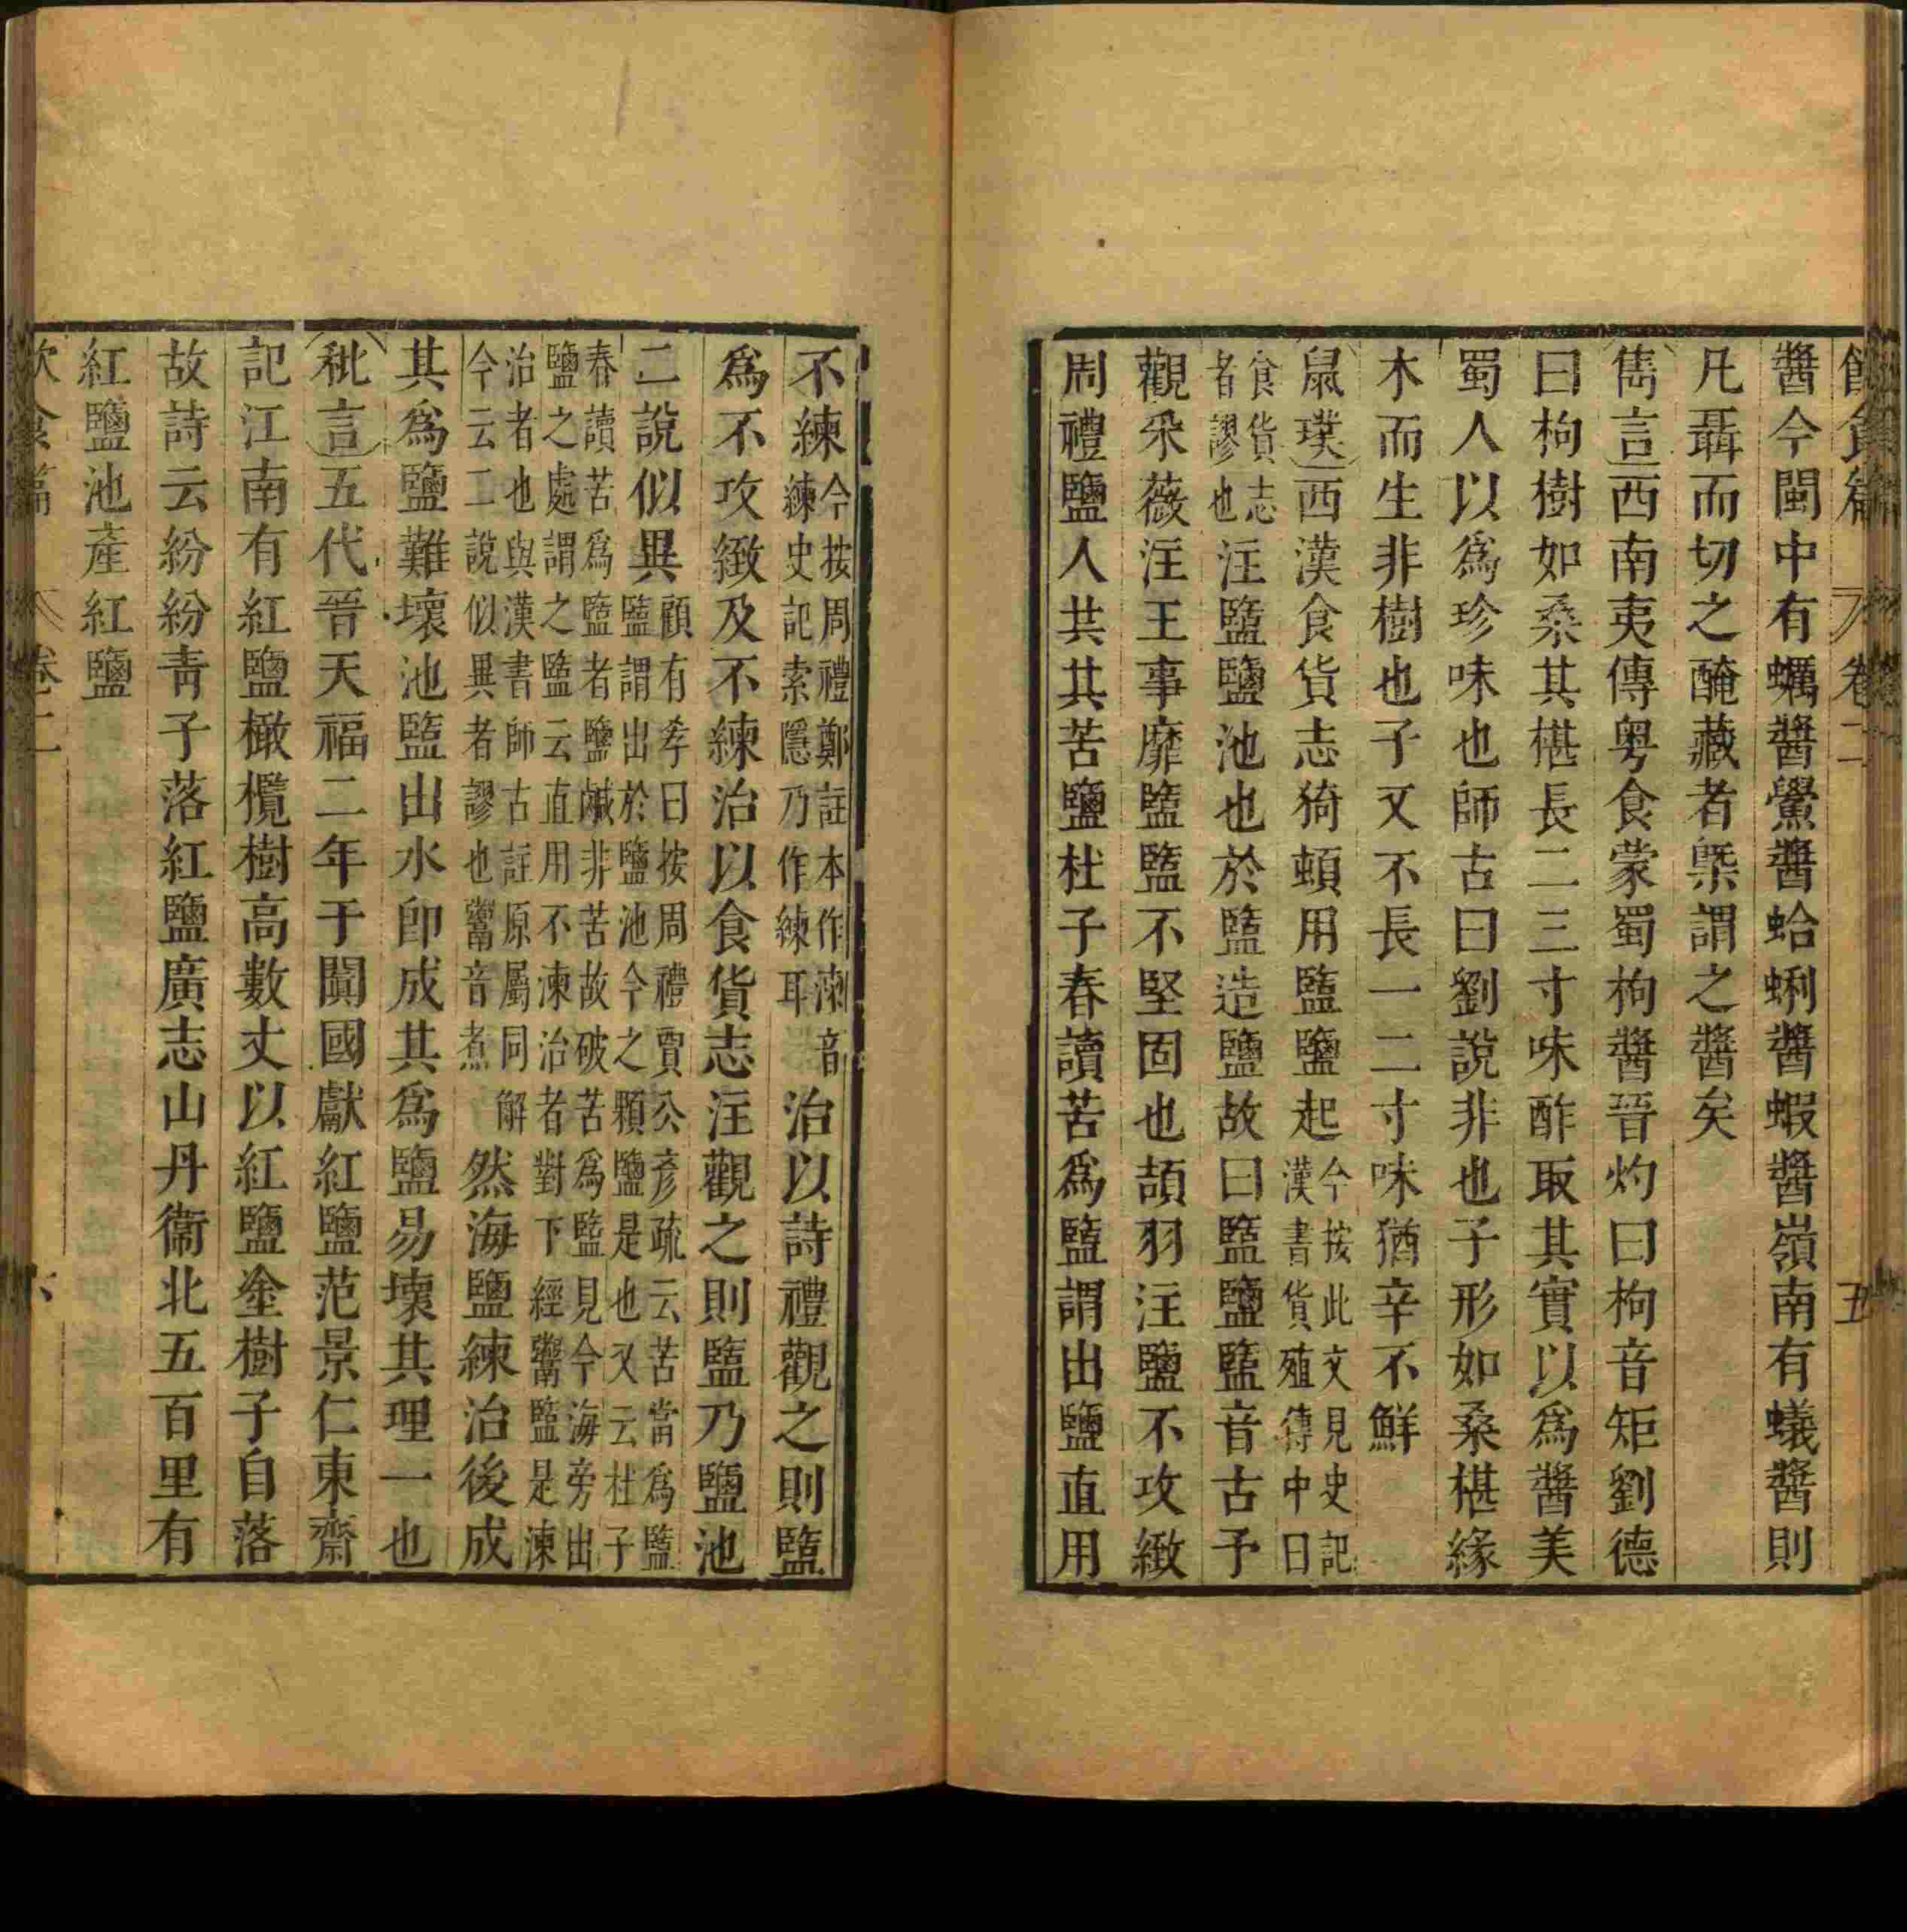 飮食篇 卷二 五
醬今閩中有蠣醬鱟醬蛤蜊醬蝦醬嶺南有蟻醬則
凡聶而切之醃藏者槩謂之醬矣
雋言西南夷傳粤食蒙蜀枸醬晉灼曰枸音矩劉德
曰枸樹如桑其椹長二三寸味酢取其實以爲醬美
蜀人以爲珍味也師古曰劉說非也子形如桑椹緣
木而生非樹也子又不長一二寸味猶辛不鮮
鼠璞西漢食貨志猗頓用盬鹽起今按此文見史記漢書貨殖傳中曰
食貨志者謬也注盬鹽池也於盬造鹽故曰盬鹽盬音古予
觀采薇注王事靡盬盬不堅固也頡羽注鹽不攻緻
周禮鹽人共其苦鹽杜子春讀苦爲盬謂出鹽直用
不練今按周禮鄭註本作湅音練史記索隱乃作練耳治以詩禮觀之則盬
爲不攻緻及不練治以食貨志注觀之則盬乃鹽池
二說似異顧有孝曰按周禮賈公彥疏云苦當爲盬盬謂出於鹽池今之顆鹽是也又云杜子
春讀苦爲盬者鹽鹹非苦故破苦爲盬見今海旁出鹽之處謂之盬云直用不湅治者對下經鬻盬是湅
治者也與漢書師古註原屬同解今云二說似異者謬也鬻音煮然海鹽練治後成
其爲鹽難壞池盬出水卽成其爲鹽易壞其理一也
秕言五代晉天福二年于闐國獻紅鹽范景仁東齋
記江南有紅鹽橄欖樹高數丈以紅鹽塗樹子自落
故詩云紛紛靑子落紅鹽廣志山丹衞北五百里有
紅鹽池產紅鹽
飮食篇 卷二 六